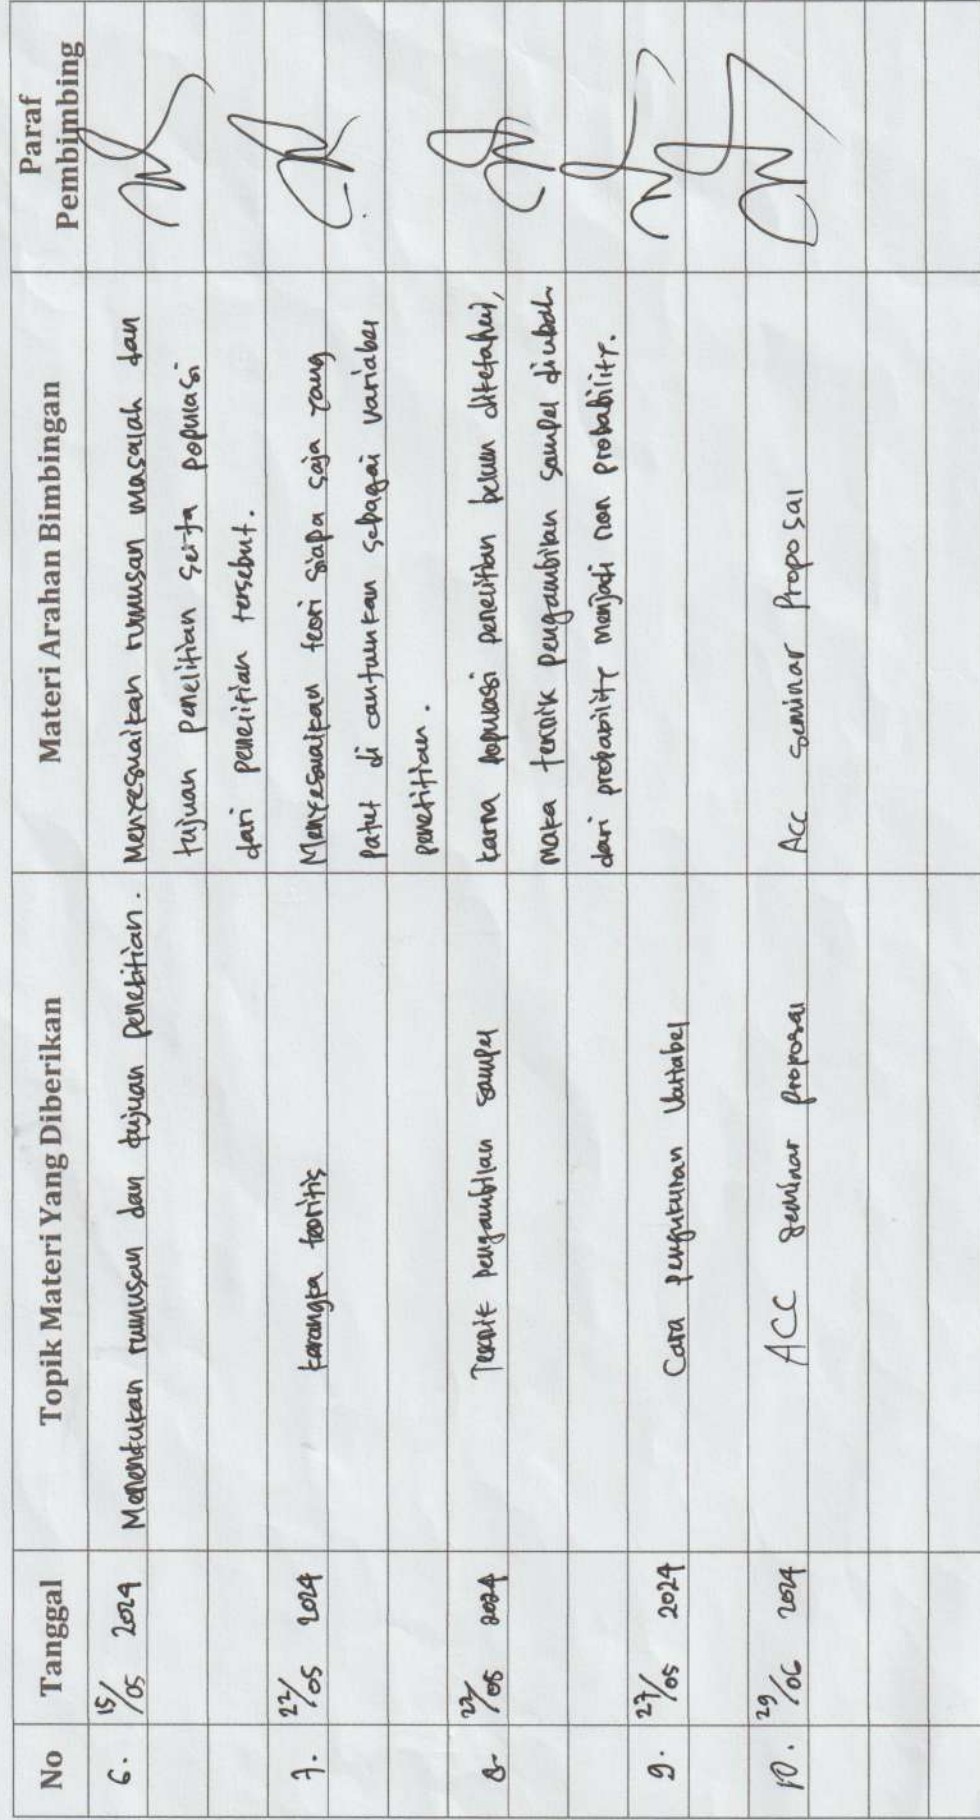 No Tanggal Topik Materi Yang Diberikan Materi Arahan Bimbingan Paraf Pembimbing
6. 15/05 2024 Menentukan rumusan dan tujuan penelitian. Menyesuaikan rumusan masalah dan
tujuan penelitian serta populasi
dari penelitian tersebut.
7. 22/05 2024 karangka teoritis Menyesuaikan teori siapa saja yang
patut di cantumkan sebagai variabel
penelitian.
8. 22/05 2024 Teknik pengambilan sampel karna populasi penelitian belum diketahui,
maka teknik pengambilan sampel diubah
dari probability menjadi non probability.
9. 27/05 2024 Cara pengukuran Variabel
10. 29/06 2024 ACC seminar proposal Acc seminar proposal